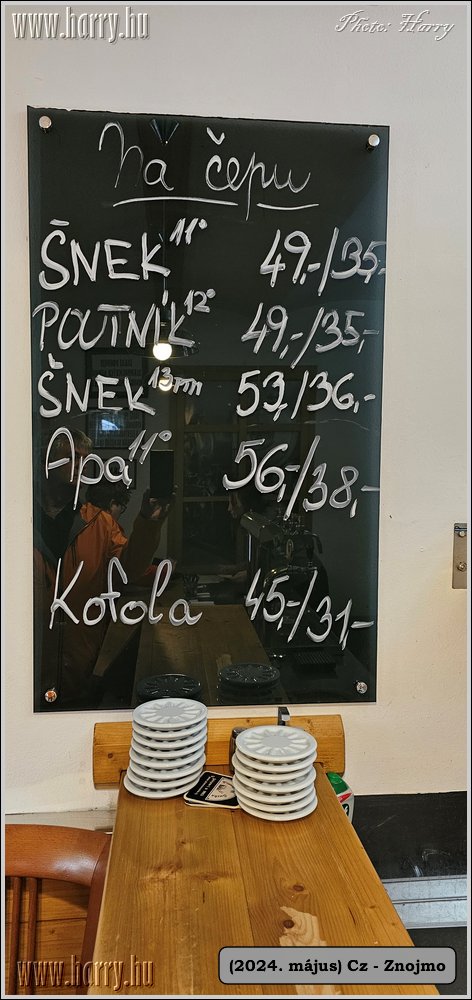 www.harry.hu
Photo: Harry
Na čepu
ŠNEK 11° 49,-/35,-
POUTNÍK 12° 49,-/35,-
ŠNEK 13 53,-/36,-
Apa 11° 56,-/38,-
Kofola 45,-/31,-
www.harry.hu
(2024. május) Cz - Znojmo